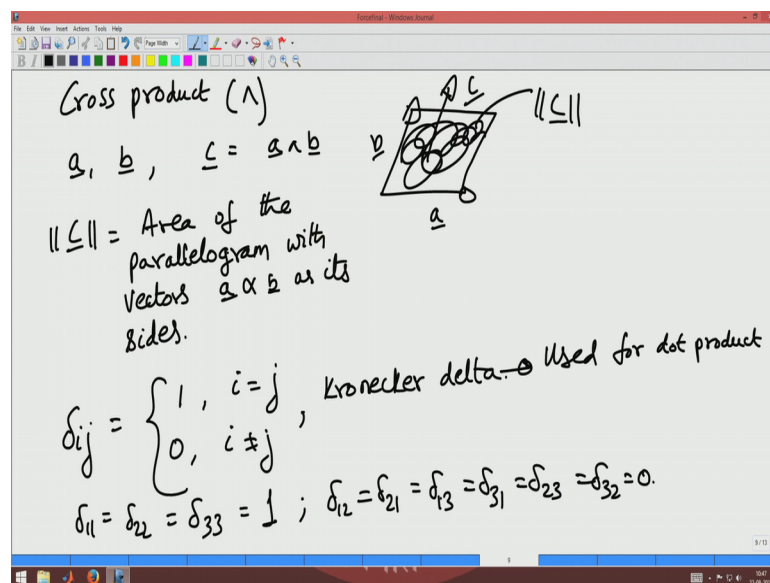 Forcefinal - Windows Journal
File Edit View Insert Actions Tools Help
Page Width
B I
Cross product (∧)
a, b, c = a ∧ b
b
c
||c||
a
||c|| = Area of the
parallelogram with
vectors a & b as its
sides.
δij = { 1, i = j
0, i ≠ j , Kronecker delta. → Used for dot product
δ11 = δ22 = δ33 = 1 ; δ12 = δ21 = δ13 = δ31 = δ23 = δ32 = 0.
9/13
9
10:47